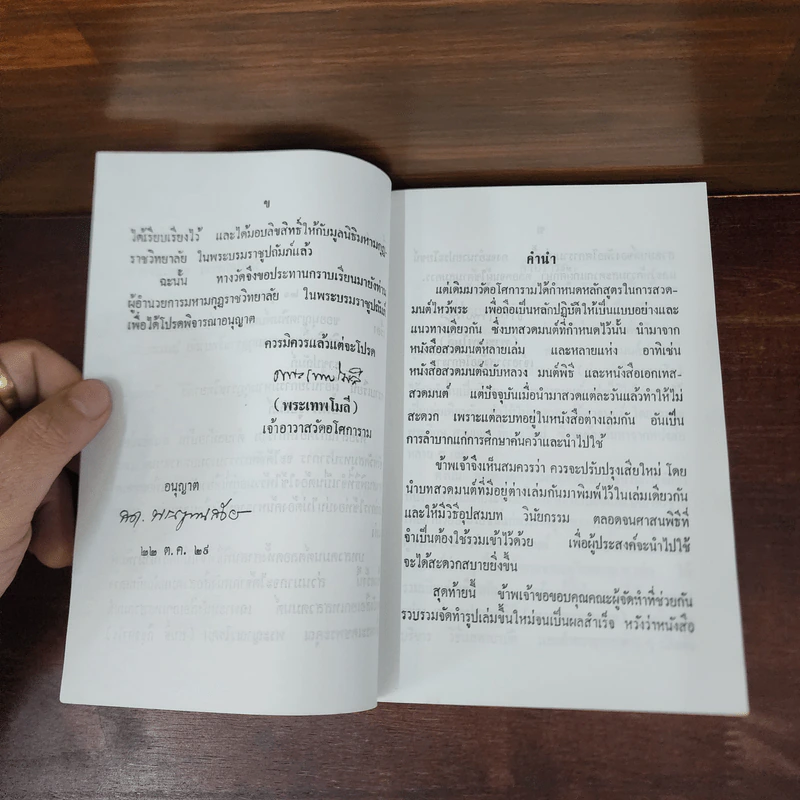 ข
ได้เรียบเรียงไว้ และได้มอบลิขสิทธิ์ให้กับมูลนิธิมหามกุฏ
ราชวิทยาลัย ในพระบรมราชูปถัมภ์แล้ว
ฉะนั้น ทางวัดจึงขอประทานกราบเรียนมายังท่าน
ผู้อำนวยการมหามกุฏราชวิทยาลัย ในพระบรมราชูปถัมภ์
เพื่อได้โปรดพิจารณาอนุญาต
ควรมิควรแล้วแต่จะโปรด
(พระเทพโมลี)
เจ้าอาวาสวัดอโศการาม
อนุญาต
๒๒ ต.ค. ๒๙
คำนำ
แต่เดิมมาวัดอโศการามได้กำหนดหลักสูตรในการสวด-
มนต์ไหว้พระ เพื่อถือเป็นหลักปฏิบัติให้เป็นแบบอย่างและ
แนวทางเดียวกัน ซึ่งบทสวดมนต์ที่กำหนดไว้นั้น นำมาจาก
หนังสือสวดมนต์หลายเล่ม และหลายแห่ง อาทิเช่น
หนังสือสวดมนต์ฉบับหลวง มนต์พิธี และหนังสือเอกเทส
สวดมนต์ แต่ปัจจุบันเมื่อนำมาสวดแต่ละวันแล้วทำให้ไม่
สะดวก เพราะแต่ละบทอยู่ในหนังสือต่างเล่มกัน อันเป็น
การลำบากแก่การศึกษาค้นคว้าและนำไปใช้
ข้าพเจ้าจึงเห็นสมควรว่า ควรจะปรับปรุงเสียใหม่ โดย
นำบทสวดมนต์ที่มีอยู่ต่างเล่มกันมาพิมพ์ไว้ในเล่มเดียวกัน
และให้มีวิธีอุปสมบท วินัยกรรม ตลอดจนศาสนพิธีที่
จำเป็นต้องใช้รวมเข้าไว้ด้วย เพื่อผู้ประสงค์จะนำไปใช้
จะได้สะดวกสบายยิ่งขึ้น
สุดท้ายนี้ ข้าพเจ้าขอขอบคุณคณะผู้จัดทำที่ช่วยกัน
รวบรวมจัดทำรูปเล่มขึ้นใหม่จนเป็นผลสำเร็จ หวังว่าหนังสือ